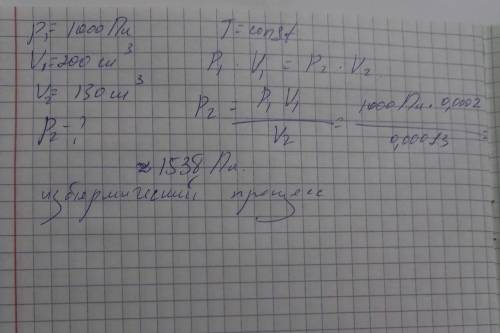 P₁ = 1000 Па
V₁ = 200 см³
V₂ = 130 см³
P₂ - ?
T = const
P₁ · V₁ = P₂ · V₂
P₂ = P₁ V₁ / V₂ = 1000 Па · 0,0002 / 0,00013 =
≈ 1538 Па.
изотермический процесс